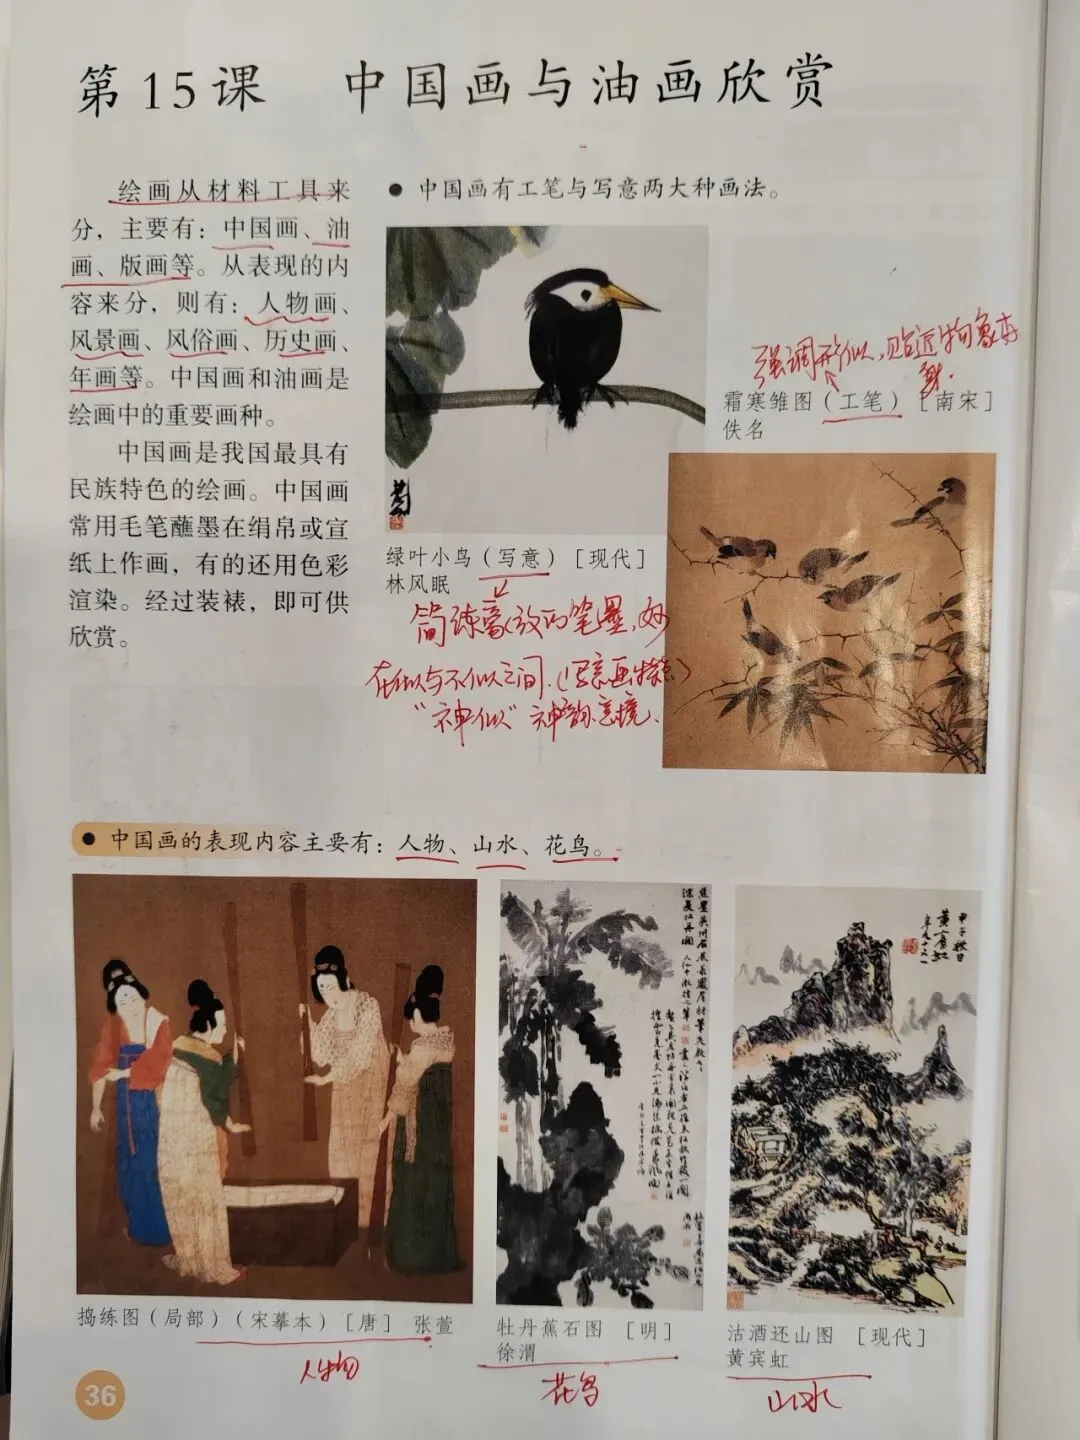 第15课 中国画与油画欣赏
绘画从材料工具来
分，主要有：中国画、油
画、版画等。从表现的内
容来分，则有：人物画、
风景画、风俗画、历史画、
年画等。中国画和油画是
绘画中的重要画种。
中国画是我国最具有
民族特色的绘画。中国画
常用毛笔蘸墨在绢帛或宣
纸上作画，有的还用色彩
渲染。经过装裱，即可供
欣赏。
●中国画有工笔与写意两大种画法。
强调形似，贴近物象本
身.
霜寒雏图（工笔）［南宋］
佚名
绿叶小鸟（写意）［现代］
林风眠
简练豪放的笔墨，妙
在似与不似之间.（写意画特点）
“神似”神韵.意境、
●中国画的表现内容主要有：人物、山水、花鸟。
甲子秋日
黄宾虹
年九十又一
捣练图（局部）（宋摹本）［唐］ 张萱
人物
牡丹蕉石图 ［明］
徐渭
花鸟
沽酒还山图 ［现代］
黄宾虹
山水
36